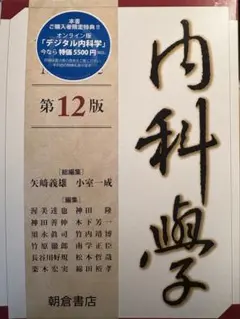 本書
ご購入者限定特典!!
オンライン版
「デジタル内科学」
今なら特価5500円
第12版
[総編集]
矢﨑義雄 小室一成
[編集]
渥美達也 神田 隆
神田善伸 木下芳一
須永眞司 竹内靖博
竹原徹郎 南学正臣
長谷川好規 松本哲哉
楽木宏実 綿田裕孝
朝倉書店
内科學